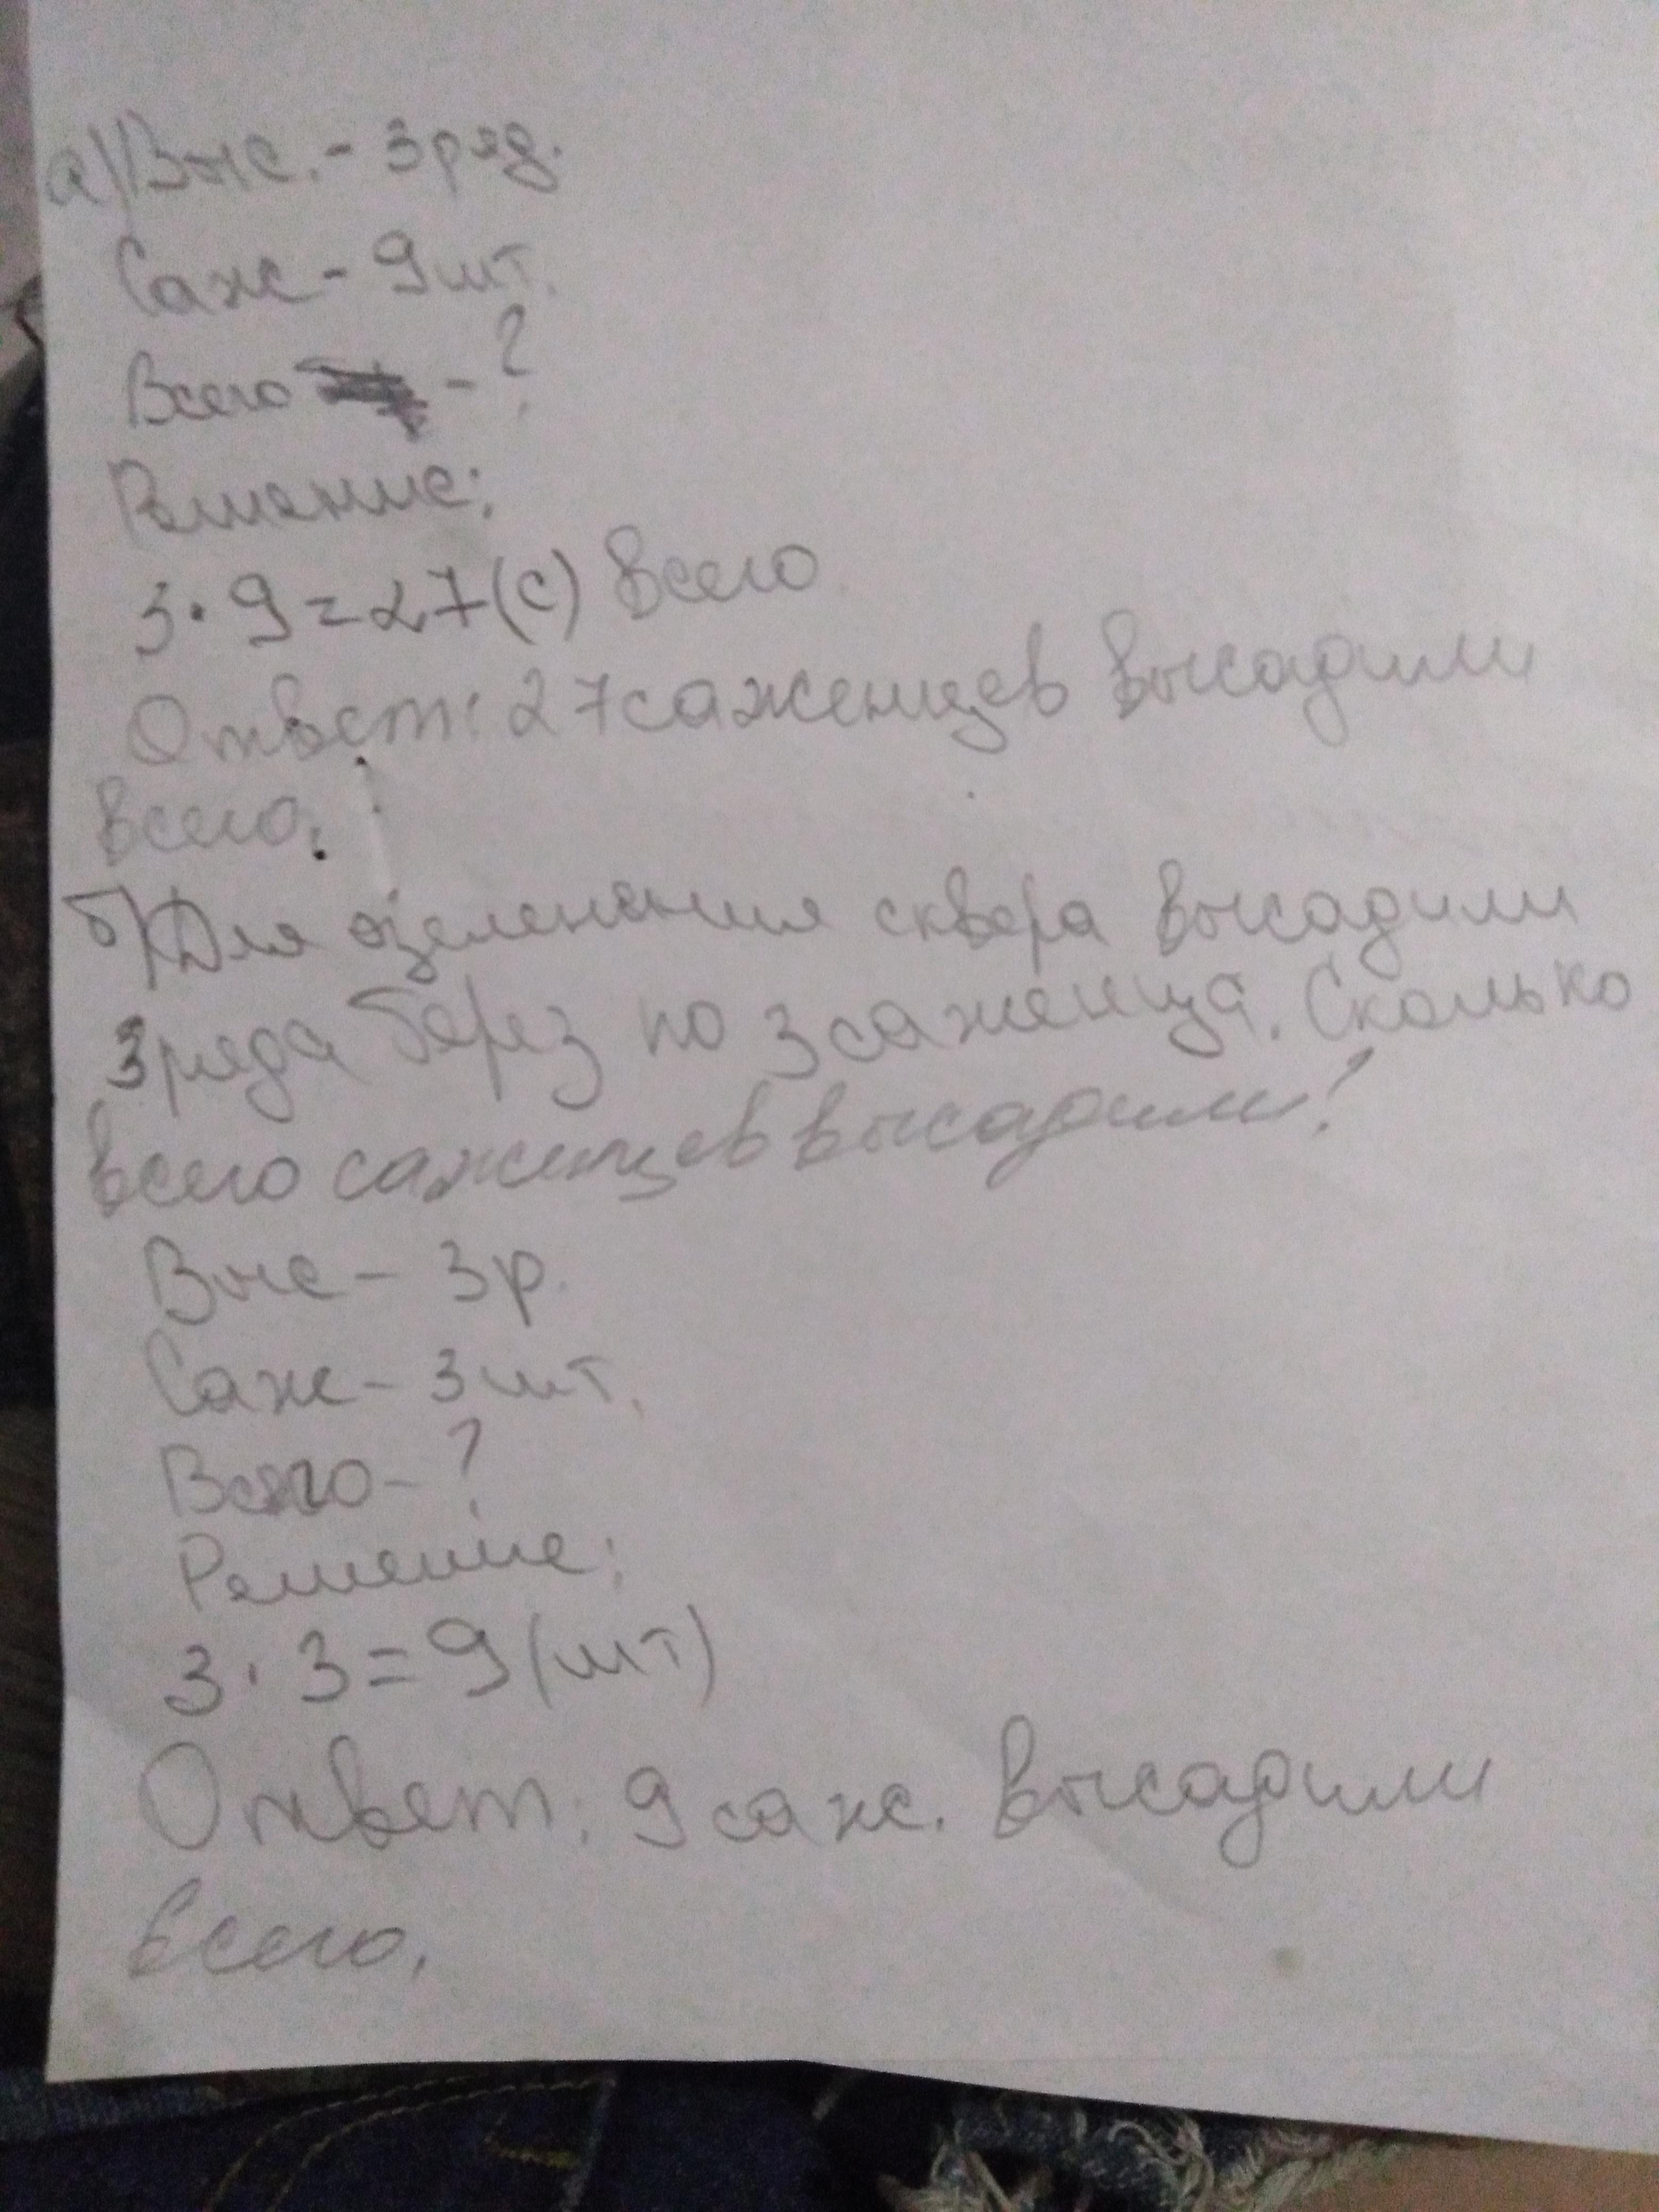 а) Выс. - 3 ряд.
Саж - 9 шт.
Всего - ?
Решение:
3 · 9 = 27 (с) всего
Ответ: 27 саженцев высадили
всего.
б) Для озеленения сквера высадили
3 ряда берез по 3 саженца. Сколько
всего саженцев высадили?
Выс - 3 р.
Саж - 3 шт.
Всего - ?
Решение:
3 · 3 = 9 (шт)
Ответ: 9 саж. высадили
всего.